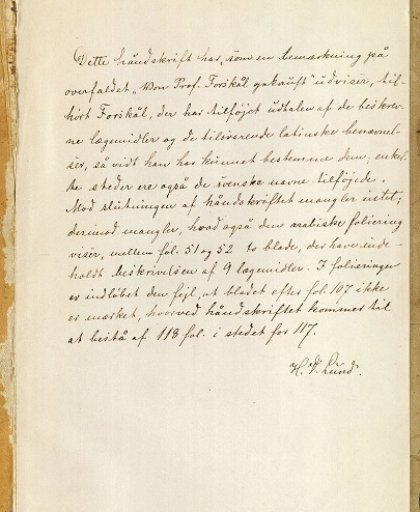 Dette håndskrift har, som en bemærkning på
overfaldet „Von Prof. Forskål gekauft" udviser, til-
hørt Forskål, der har tilföjet udtalen af de beskrev-
ne lægemidler og de tilsvarende latinske benævnel-
ser, så vidt han har kunnat bestemme dem; enkel-
te steder ere også de svenske navne tilföjede.
Mod slutningen af håndskriftet mangler intet;
derimod mangler, hvad også den arabiske foliering
viser, mellem fol. 51 og 52 to blade, der have inde-
holdt beskrivelsen af 9 lægemidler. I folieringen
er indløbet den fejl, at bladet efter fol. 107 ikke
er mærket, hvorved håndskriftet kommer til
at bestå af 118 fol. i stedet for 117.
H. Lund.